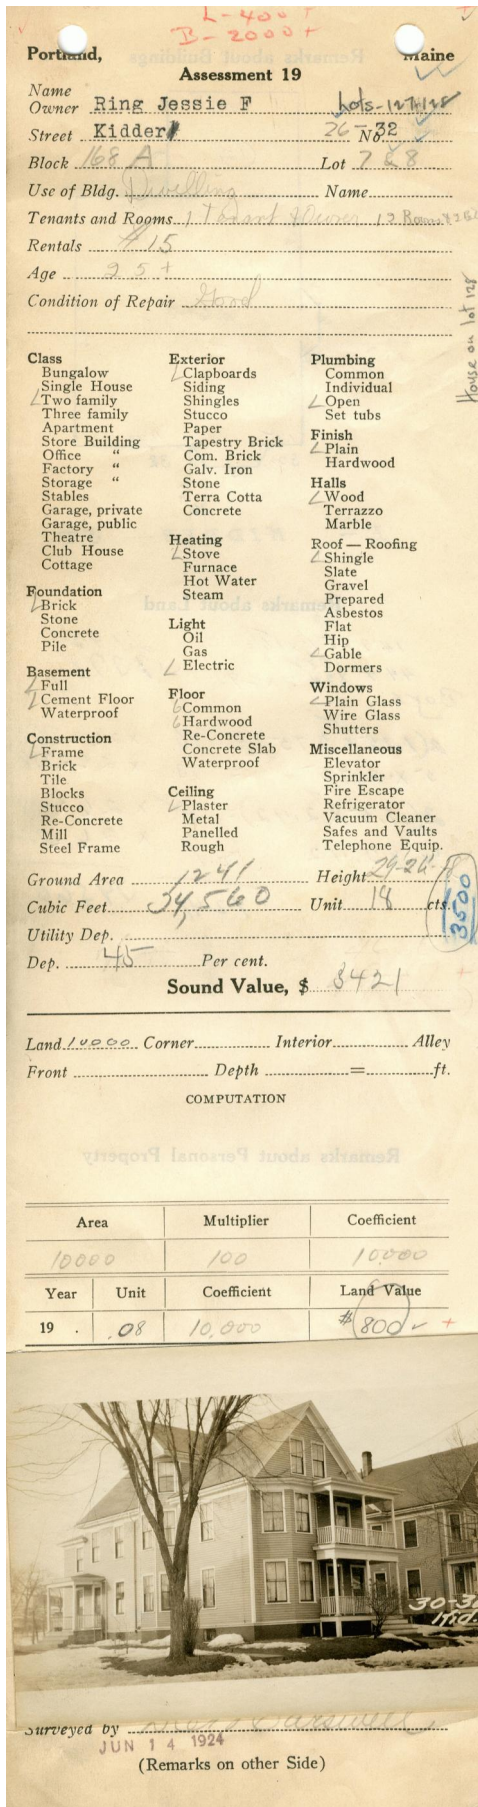 L-400+
B-2000+
Portland, Maine
Assessment 19
Name
Owner Ring Jessie F lots-127-128
Street Kidder 26- No 32
Block 168 A Lot 7 & 8
Use of Bldg. Dwelling Name
Tenants and Rooms 1 Tenant & Owner 12 Rooms
Rentals $15
Age 25+
Condition of Repair Good
House on lot 128
Class
Bungalow
Single House
Two family
Three family
Apartment
Store Building
Office "
Factory "
Storage "
Stables
Garage, private
Garage, public
Theatre
Club House
Cottage
Foundation
Brick
Stone
Concrete
Pile
Basement
Full
Cement Floor
Waterproof
Construction
Frame
Brick
Tile
Blocks
Stucco
Re-Concrete
Mill
Steel Frame
Exterior
Clapboards
Siding
Shingles
Stucco
Paper
Tapestry Brick
Com. Brick
Galv. Iron
Stone
Terra Cotta
Concrete
Heating
Stove
Furnace
Hot Water
Steam
Light
Oil
Gas
Electric
Floor
Common
Hardwood
Re-Concrete
Concrete Slab
Waterproof
Ceiling
Plaster
Metal
Panelled
Rough
Plumbing
Common
Individual
Open
Set tubs
Finish
Plain
Hardwood
Halls
Wood
Terrazzo
Marble
Roof — Roofing
Shingle
Slate
Gravel
Prepared
Asbestos
Flat
Hip
Gable
Dormers
Windows
Plain Glass
Wire Glass
Shutters
Miscellaneous
Elevator
Sprinkler
Fire Escape
Refrigerator
Vacuum Cleaner
Safes and Vaults
Telephone Equip.
Ground Area 1241 Height
Cubic Feet 34,560 Unit 18 cts.
3500
Utility Dep.
Dep. 45 Per cent.
Sound Value, $ 3421
Land 10000 Corner Interior Alley
Front Depth = ft.
COMPUTATION
Area Multiplier Coefficient
10000 100 10,000
Year Unit Coefficient Land Value
19 . .08 10,000 $800 +
30-3
Kid.
Surveyed by
JUN 14 1924
(Remarks on other Side)